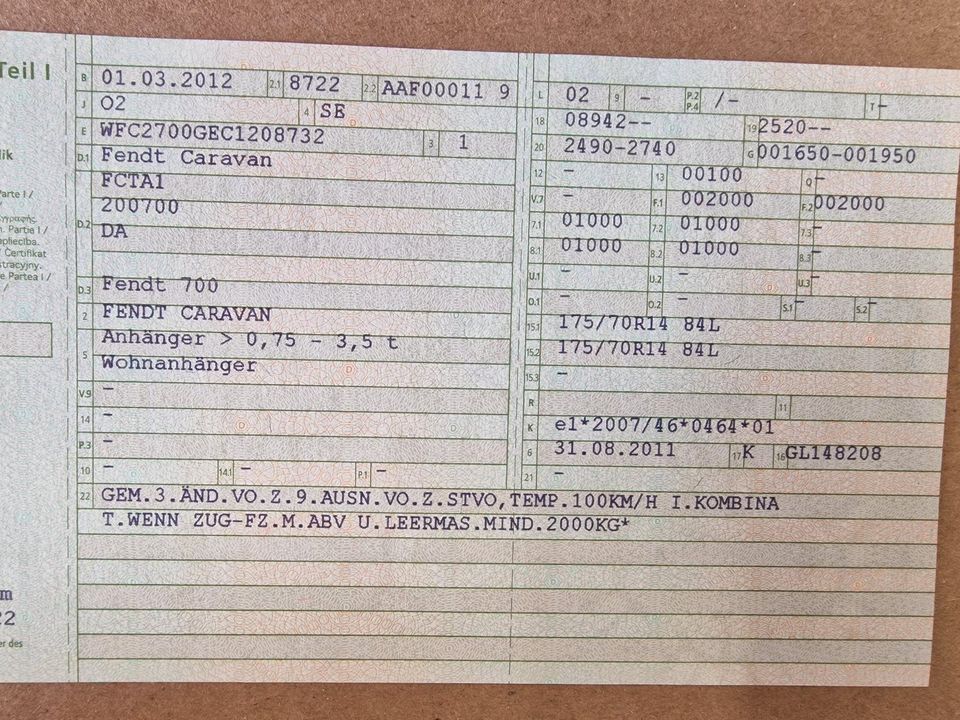 Teil I
B 01.03.2012 2.1 8722 2.2 AAF00011 9
J O2 4 SE
E WFC2700GEC1208732 3 1
D.1 Fendt Caravan
FCTA1
D.2 200700
DA
D.3 Fendt 700
2 FENDT CARAVAN
5 Anhänger > 0,75 - 3,5 t
Wohnanhänger
V.9 -
14 -
P.3 -
10 - 14.1 - P.1 -
L 02 9 - P.2 P.4 /- T -
18 08942-- 19 2520--
20 2490-2740 G 001650-001950
12 - 13 00100 Q -
V.7 - F.1 002000 F.2 002000
7.1 01000 7.2 01000 7.3 -
8.1 01000 8.2 01000 8.3 -
U.1 - U.2 - U.3 -
O.1 - O.2 - S.1 - S.2 -
15.1 175/70R14 84L
15.2 175/70R14 84L
15.3 -
R 11
K e1*2007/46*0464*01
6 31.08.2011 17 K 16 GL148208
21 -
22 GEM.3.ÄND.VO.Z.9.AUSN.VO.Z.STVO,TEMP.100KM/H I.KOMBINA
T.WENN ZUG-FZ.M.ABV U.LEERMAS.MIND.2000KG*
lik
Parte I /
. Partie I /
apliecība.
/ Certifikat
stracyjny.
e Partea I /
/
m
22
er des